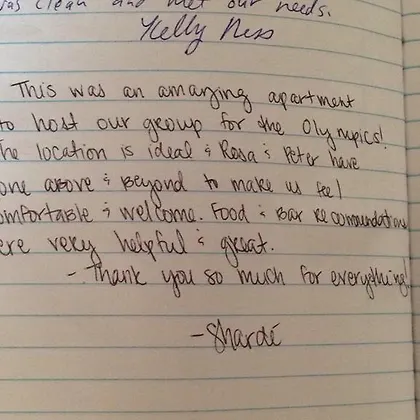 was clean and met our needs.
Kelly Ness
This was an amazing apartment
to host our group for the Olympics!
The location is ideal & Rosa & Peter have
one above & Beyond to make us feel
omfortable & welcome. Food & Bar Recommendations
ere very helpful & great.
- Thank you so much for everything!
- Shardé